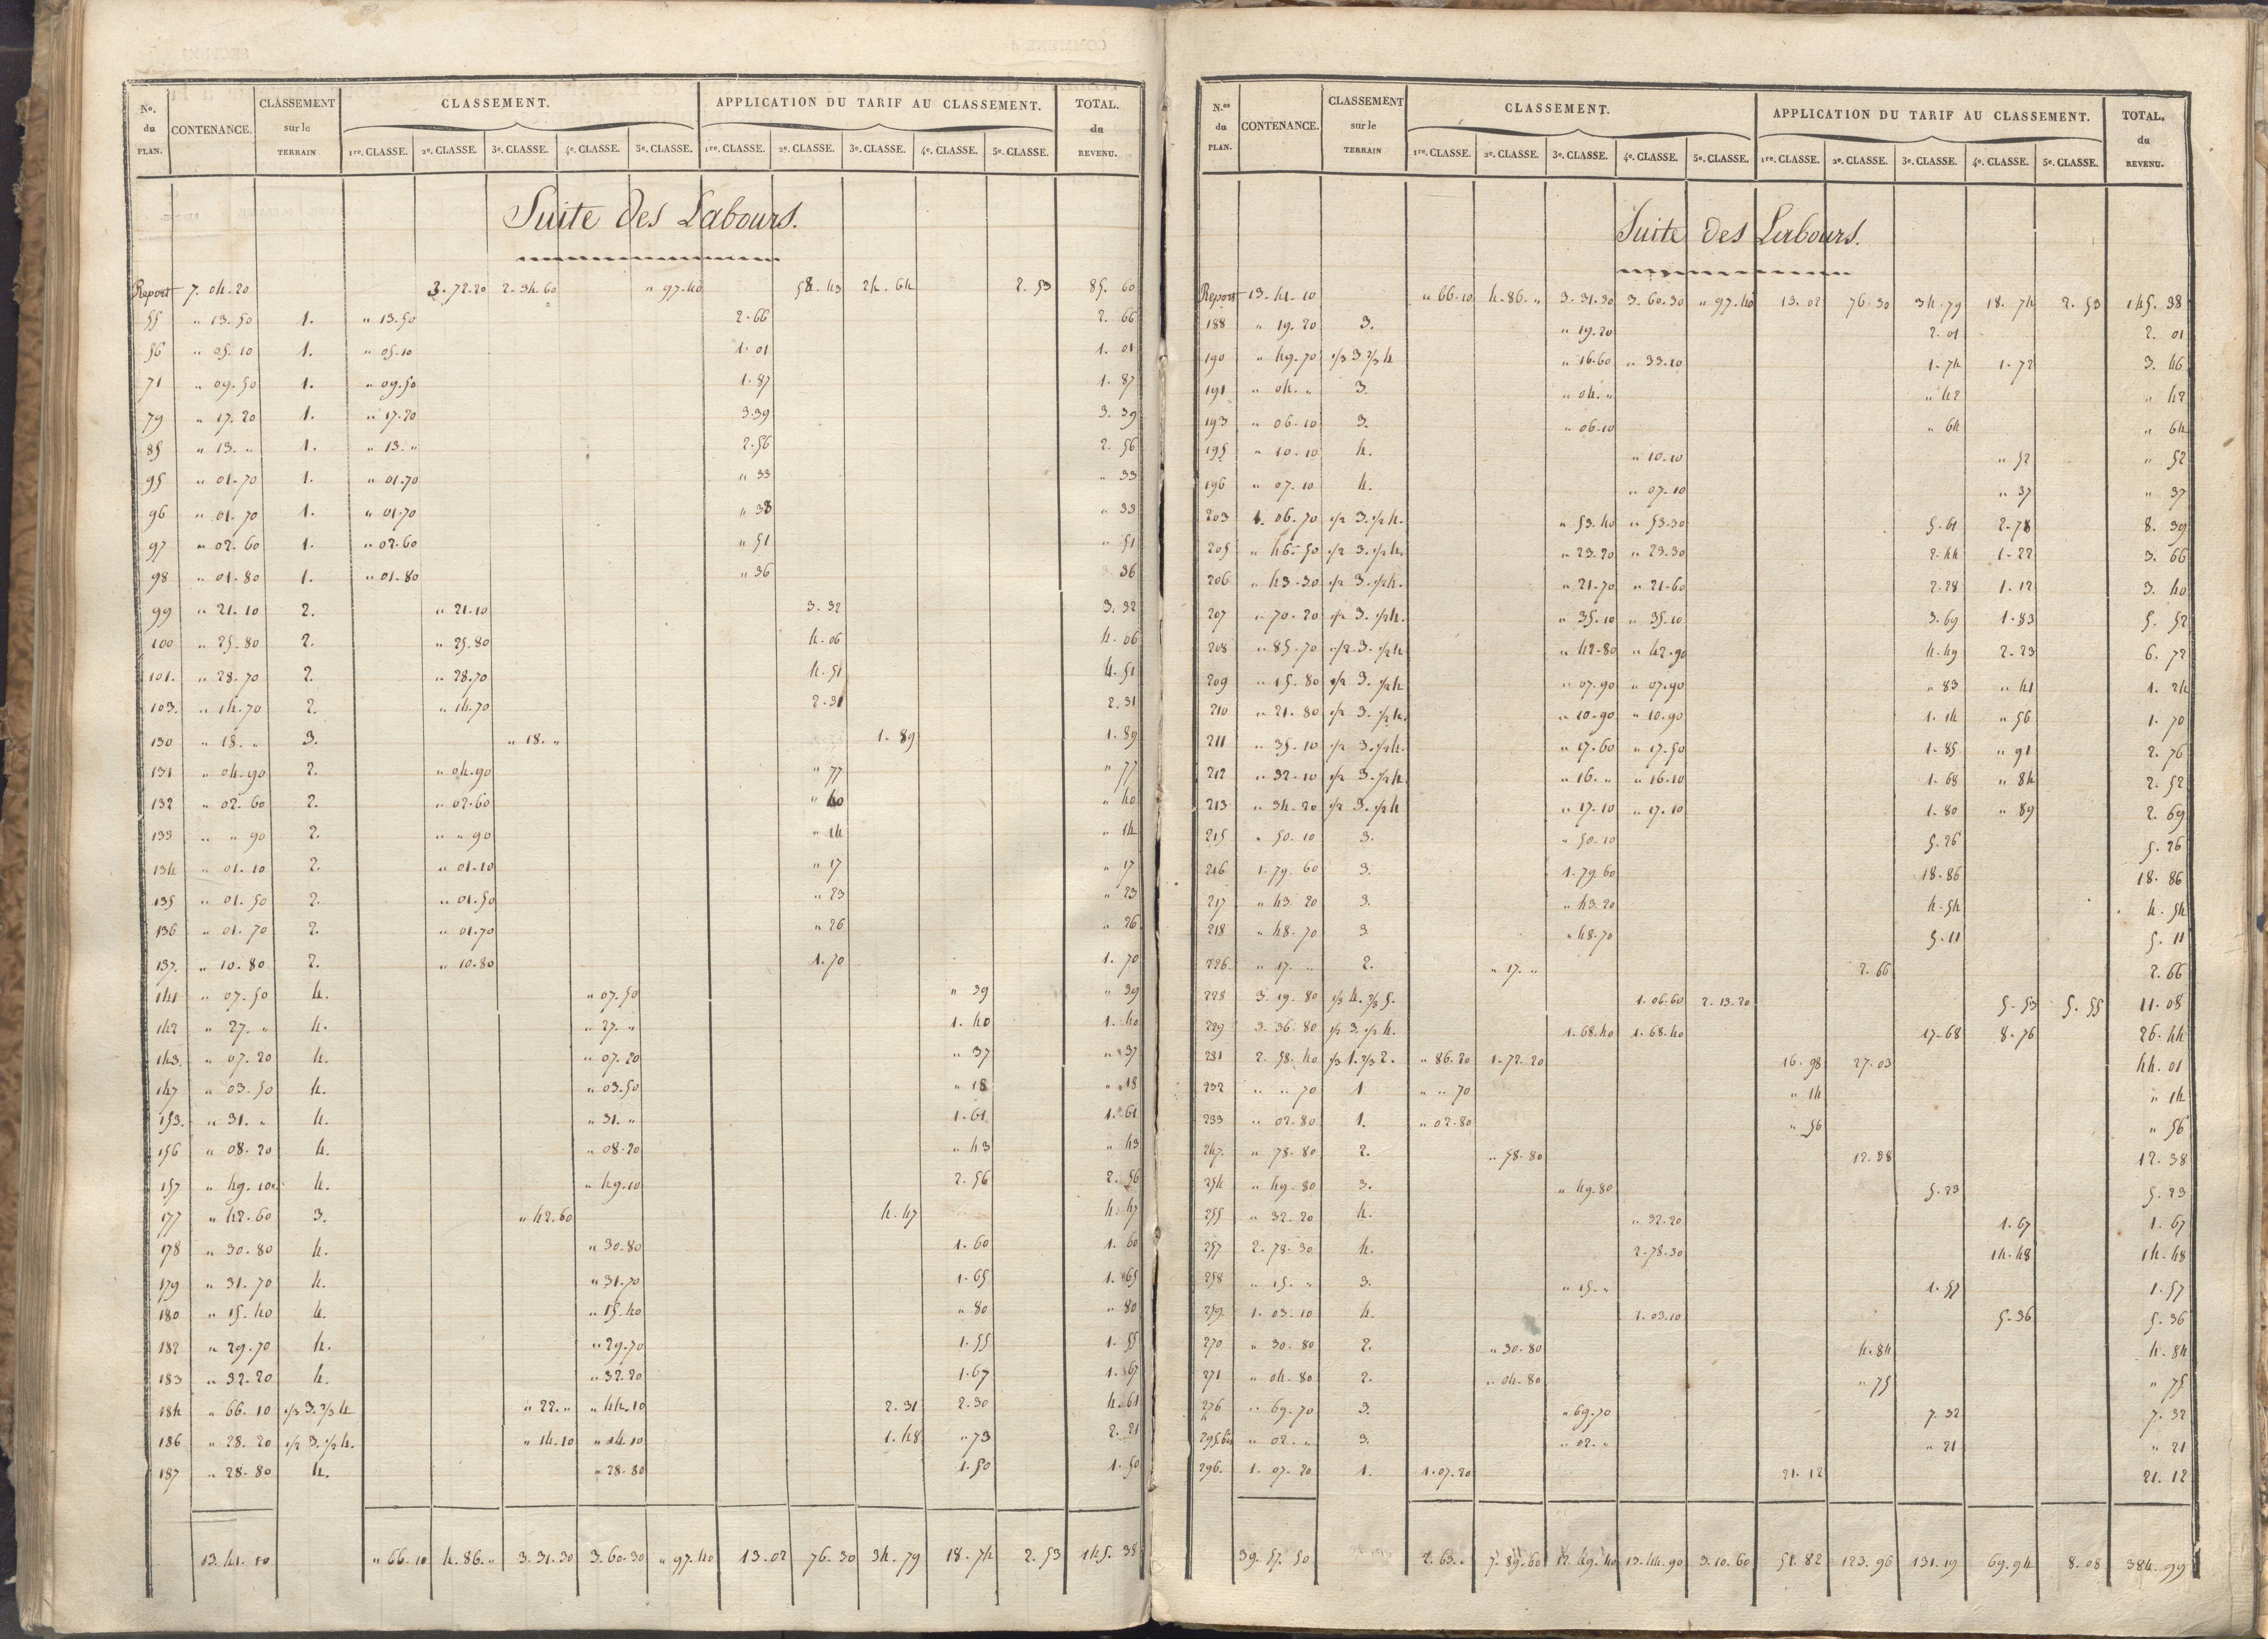 No. du PLAN. CONTENANCE. CLASSEMENT sur le TERRAIN CLASSEMENT. APPLICATION DU TARIF AU CLASSEMENT. TOTAL. du REVENU.
1re. CLASSE. 2e. CLASSE. 3e. CLASSE. 4e. CLASSE. 5e. CLASSE. 1re. CLASSE. 2e. CLASSE. 3e. CLASSE. 4e. CLASSE. 5e. CLASSE.
Suite des Labours.
Report 7. 04. 20 3. 72. 20 2. 34. 60 " 97. 40 58. 43 24. 64 2. 53 85. 60
55 " 13. 50 1. " 13. 50 2. 66 2. 66
56 " 05. 10 1. " 05. 10 1. 01 1. 01
71 " 09. 50 1. " 09. 50 1. 87 1. 87
79 " 17. 20 1. " 17. 20 3. 39 3. 39
85 " 13. " 1. " 13. " 2. 56 2. 56
95 " 01. 70 1. " 01. 70 " 33 " 33
96 " 01. 70 1. " 01. 70 " 33 " 33
97 " 02. 60 1. " 02. 60 " 51 " 51
98 " 01. 80 1. " 01. 80 " 36 " 36
99 " 21. 10 2. " 21. 10 3. 32 3. 32
100 " 25. 80 2. " 25. 80 4. 06 4. 06
101. " 28. 70 2. " 28. 70 4. 51 4. 51
103. " 14. 70 2. " 14. 70 2. 31 2. 31
130 " 18. " 3. " 18. " 1. 89 1. 89
131 " 04. 90 2. " 04. 90 " 77 " 77
132 " 02. 60 2. " 02. 60 " 40 " 40
133 " " 90 2. " " 90 " 14 " 14
134 " 01. 10 2. " 01. 10 " 17 " 17
135 " 01. 50 2. " 01. 50 " 23 " 23
136 " 01. 70 2. " 01. 70 " 26 " 26
137. " 10. 80 2. " 10. 80 1. 70 1. 70
141 " 07. 50 4. " 07. 50 " 39 " 39
142 " 27. " 4. " 27. " 1. 40 1. 40
143. " 07. 20 4. " 07. 20 " 37 " 37
147 " 03. 50 4. " 03. 50 " 18 " 18
153. " 31. " 4. " 31. " 1. 61 1. 61
156 " 08. 20 4. " 08. 20 " 43 " 43
157 " 49. 10 4. " 49. 10 2. 56 2. 56
177 " 42. 60 3. " 42. 60 4. 47 4. 47
178 " 30. 80 4. " 30. 80 1. 60 1. 60
179 " 31. 70 4. " 31. 70 1. 65 1. 65
180 " 15. 40 4. " 15. 40 " 80 " 80
182 " 29. 70 4. " 29. 70 1. 55 1. 55
183 " 32. 20 4. " 32. 20 1. 67 1. 67
184 " 66. 10 1/3 3. 2/3 4 " 22. " " 44. 10 2. 31 2. 30 4. 61
186 " 28. 20 1/2 3. 1/2 4. " 14. 10 " 14. 10 1. 48 " 73 2. 21
187 " 28. 80 4. " 28. 80 1. 50 1. 50
13. 41. 10 " 66. 10 4. 86. " 3. 31. 30 3. 60. 30 " 97. 40 13. 02 76. 30 34. 79 18. 74 2. 53 145. 38
N.os du PLAN. CONTENANCE. CLASSEMENT sur le TERRAIN CLASSEMENT. APPLICATION DU TARIF AU CLASSEMENT. TOTAL. du REVENU.
1re. CLASSE. 2e. CLASSE. 3e. CLASSE. 4e. CLASSE. 5e. CLASSE. 1re. CLASSE. 2e. CLASSE. 3e. CLASSE. 4e. CLASSE. 5e. CLASSE.
Suite des Labours.
Report 13. 41. 10 " 66. 10 4. 86. " 3. 31. 30 3. 60. 30 " 97. 40 13. 02 76. 30 34. 79 18. 74 2. 53 145. 38
188 " 19. 20 3. " 19. 20 2. 01 2. 01
190 " 49. 70 1/3 3 2/3 4 " 16. 60 " 33. 10 1. 74 1. 72 3. 46
191 " 04. " 3. " 04. " " 42 " 42
193 " 06. 10 3. " 06. 10 " 64 " 64
195 " 10. 10 4. " 10. 10 " 52 " 52
196 " 07. 10 4. " 07. 10 " 37 " 37
203 1. 06. 70 1/2 3. 1/2 4. " 53. 40 " 53. 30 5. 61 2. 78 8. 39
205 " 46. 50 1/2 3. 1/2 4. " 23. 20 " 23. 30 2. 44 1. 22 3. 66
206 " 43. 30 1/2 3. 1/2 4. " 21. 70 " 21. 60 2. 28 1. 12 3. 40
207 " 70. 20 1/2 3. 1/2 4. " 35. 10 " 35. 10 3. 69 1. 83 5. 52
208 " 85. 70 1/2 3. 1/2 4 " 42. 80 " 42. 90 4. 49 2. 23 6. 72
209 " 15. 80 1/2 3. 1/2 4 " 07. 90 " 07. 90 " 83 " 41 1. 24
210 " 21. 80 1/2 3. 1/2 4. " 10. 90 " 10. 90 1. 14 " 56 1. 70
211 " 35. 10 1/2 3. 1/2 4. " 17. 60 " 17. 50 1. 85 " 91 2. 76
212 " 32. 10 1/2 3. 1/2 4. " 16. " " 16. 10 1. 68 " 84 2. 52
213 " 34. 20 1/2 3. 1/2 4 " 17. 10 " 17. 10 1. 80 " 89 2. 69
215 " 50. 10 3. " 50. 10 5. 26 5. 26
216 1. 79. 60 3. 1. 79. 60 18. 86 18. 86
217 " 43. 20 3. " 43. 20 4. 54 4. 54
218 " 48. 70 3 " 48. 70 5. 11 5. 11
226. " 17. " 2. " 17. " 2. 66 2. 66
228 3. 19. 80 1/3 4. 2/3 5. 1. 06. 60 2. 13. 20 5. 53 5. 55 11. 08
229 3. 36. 80 1/2 3. 1/2 4. 1. 68. 40 1. 68. 40 17. 68 8. 76 26. 44
231 2. 58. 40 1/3 1. 2/3 2. " 86. 20 1. 72. 20 16. 98 27. 03 44. 01
232 " " 70 1 " " 70 " 14 " 14
233 " 02. 80 1. " 02. 80 " 56 " 56
247. " 78. 80 2. " 58. 80 12. 38 12. 38
254 " 49. 80 3. " 49. 80 5. 23 5. 23
255 " 32. 20 4. " 32. 20 1. 67 1. 67
257 2. 78. 30 4. 2. 78. 30 14. 48 14. 48
258 " 15. " 3. " 15. " 1. 57 1. 57
259. 1. 03. 10 4. 1. 03. 10 5. 36 5. 36
270 " 30. 80 2. " 30. 80 4. 84 4. 84
271 " 04. 80 2. " 04. 80 " 75 " 75
276 " 69. 70 3. " 69. 70 7. 32 7. 32
295 bis " 02. " 3. " 02. " " 21 " 21
296. 1. 07. 20 1. 1. 07. 20 21. 12 21. 12
39. 57. 50 2. 63. " 7. 89. 60 12. 49. 40 13. 44. 90 3. 10. 60 51. 82 123. 96 131. 19 69. 94 8. 08 384. 99